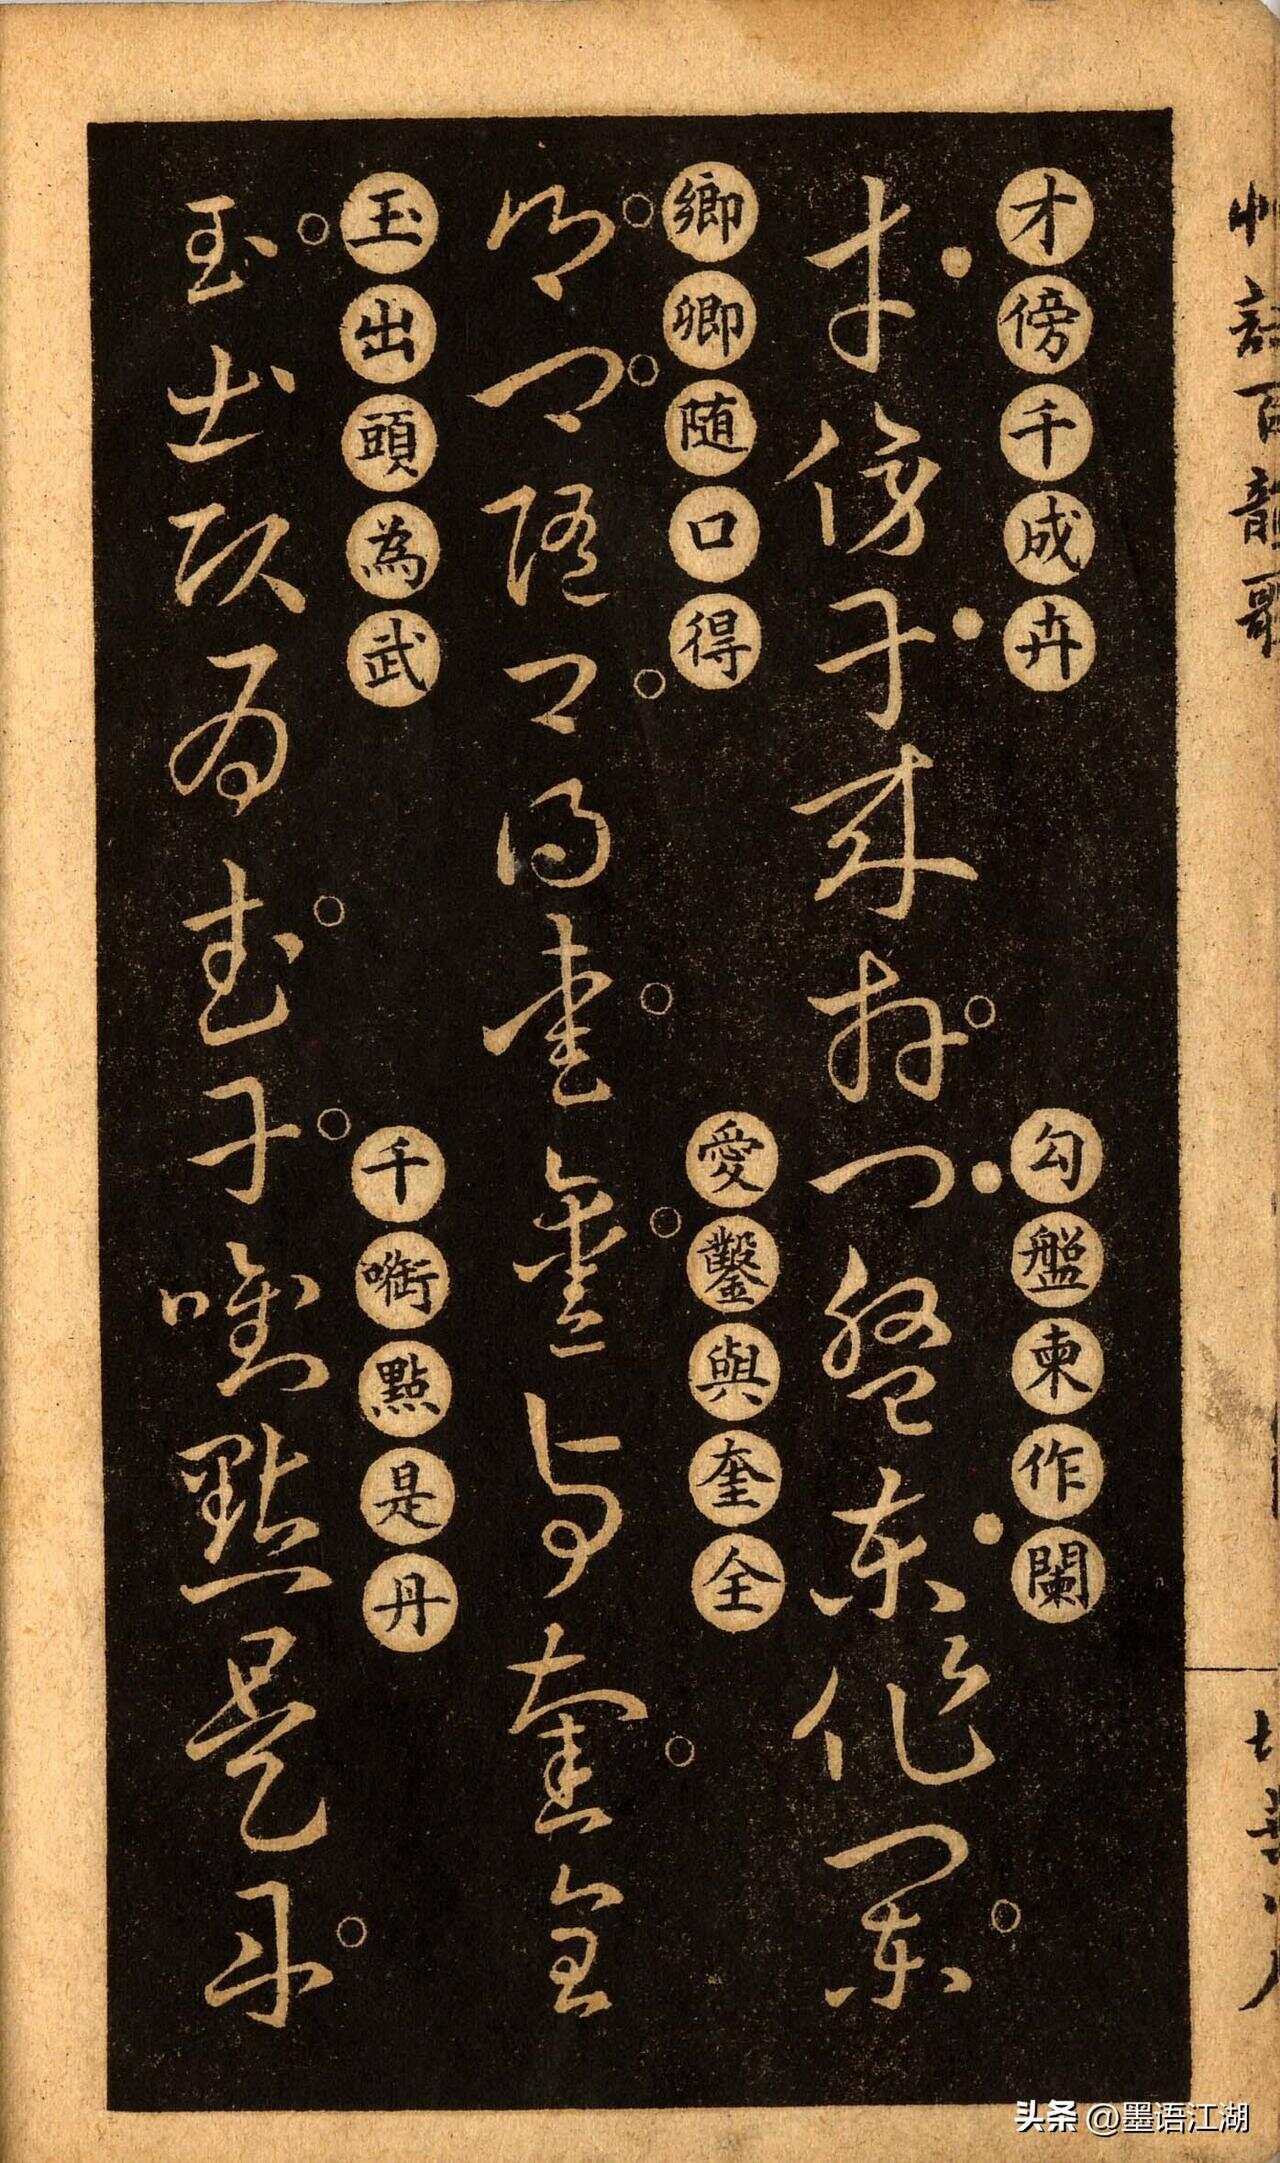 才傍千成卉
勾盤柬作闌
卿卿随口得
愛鑿與奎全
玉出頭為武
千啣點是丹
头条 @墨语江湖